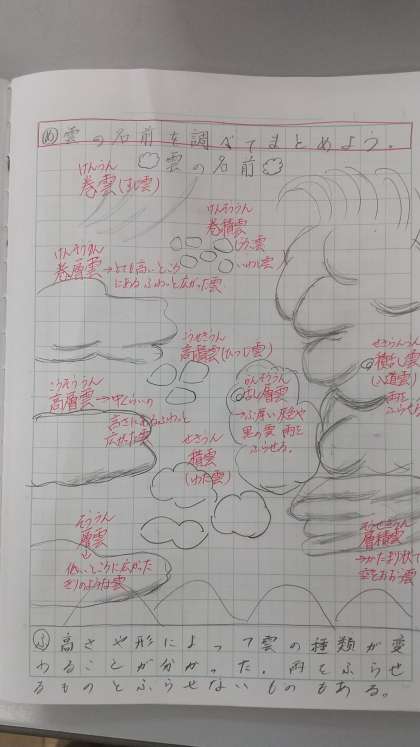 め 雲の名前を調べてまとめよう。
雲の名前
けんうん
巻雲(すじ雲)
けんそううん
巻層雲→とても高いところ
にあるふわっと広がった雲
けんせきうん
巻積雲
うろこ雲
いわし雲
こうせきうん
高積雲(ひつじ雲)
こうそううん
高層雲→中くらいの
高さにあるふわっと
広がった雲
せきうん
積雲
(わた雲)
らんそううん
層雲
→ぶ厚い灰色や
黒の雲 雨を
ふらせる。
せきらんうん
(入道雲)
雨を
ふらせる
そううん
層雲
低いところに広がった
きりのような雲
そうせきうん
層積雲
→かたまり状で
空をおおう雲
ふ 高さや形によって雲の種類が変
わることが分かった。雨をふらせ
るものとふらせないものもある。